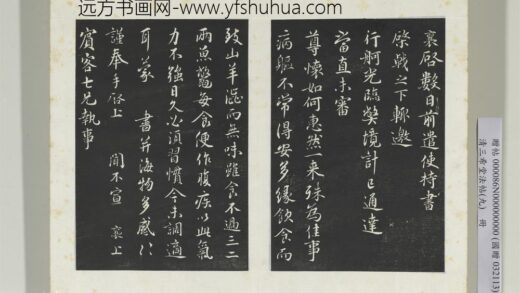 远方书画网-www.yfshuhua.com
襄啓數日前遣使持書
棨戟之下輒邀
行舸光臨獘境計已通達
當直未審
尊懷如何惠然一來殊為佳事
病軀不常得安多緣飲食而
致山羊湩而無味雖食不過三二
兩魚鱉每食便作腹疾以此氣
力不強日久必須習慣今未調適
耳蒙 書并海物多感〻
謹奉手啓上 聞不宣 襄上
賓客七兄執事
贈帖 000086N000000000 (國贈 032113)
清三希堂法帖(九) 冊